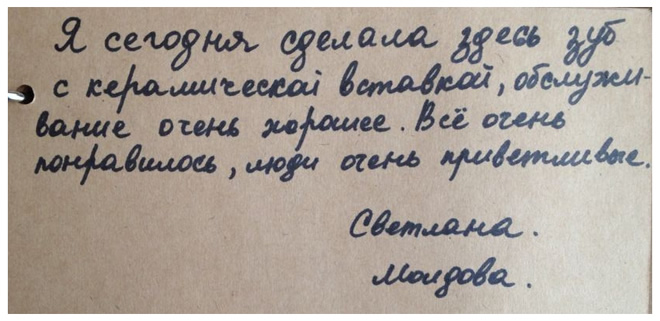 Я сегодня сделала здесь зуб
с керамической вставкой, обслужи-
вание очень хорошее. Всё очень
понравилось, люди очень приветливые.
Светлана.
Молдова.